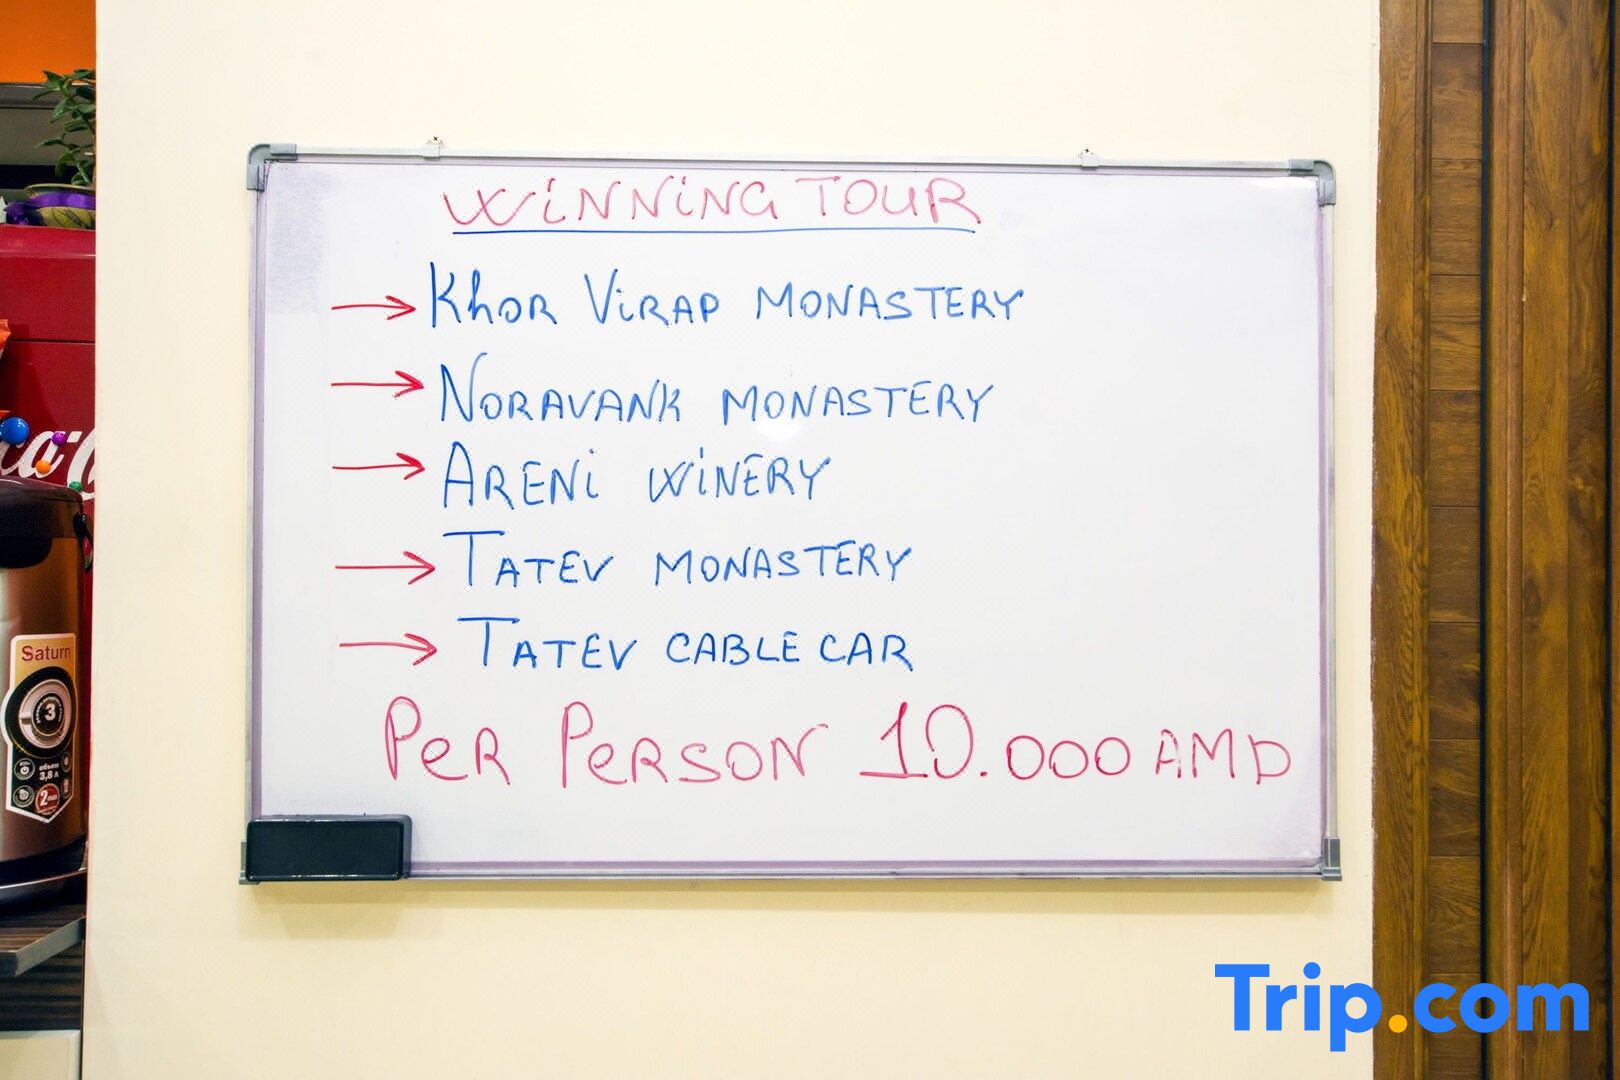 WINNING TOUR
→ Khor Virap MONASTERY
→ NORAVANK MONASTERY
→ ARENi WINERY
→ TATEV MONASTERY
→ TATEV CABLE CAR
PER PERSON 10.000 AMD
Saturn
3
3,8 л
2
Trip.com